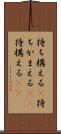 待ち構える 待
ちかまえる
待構える